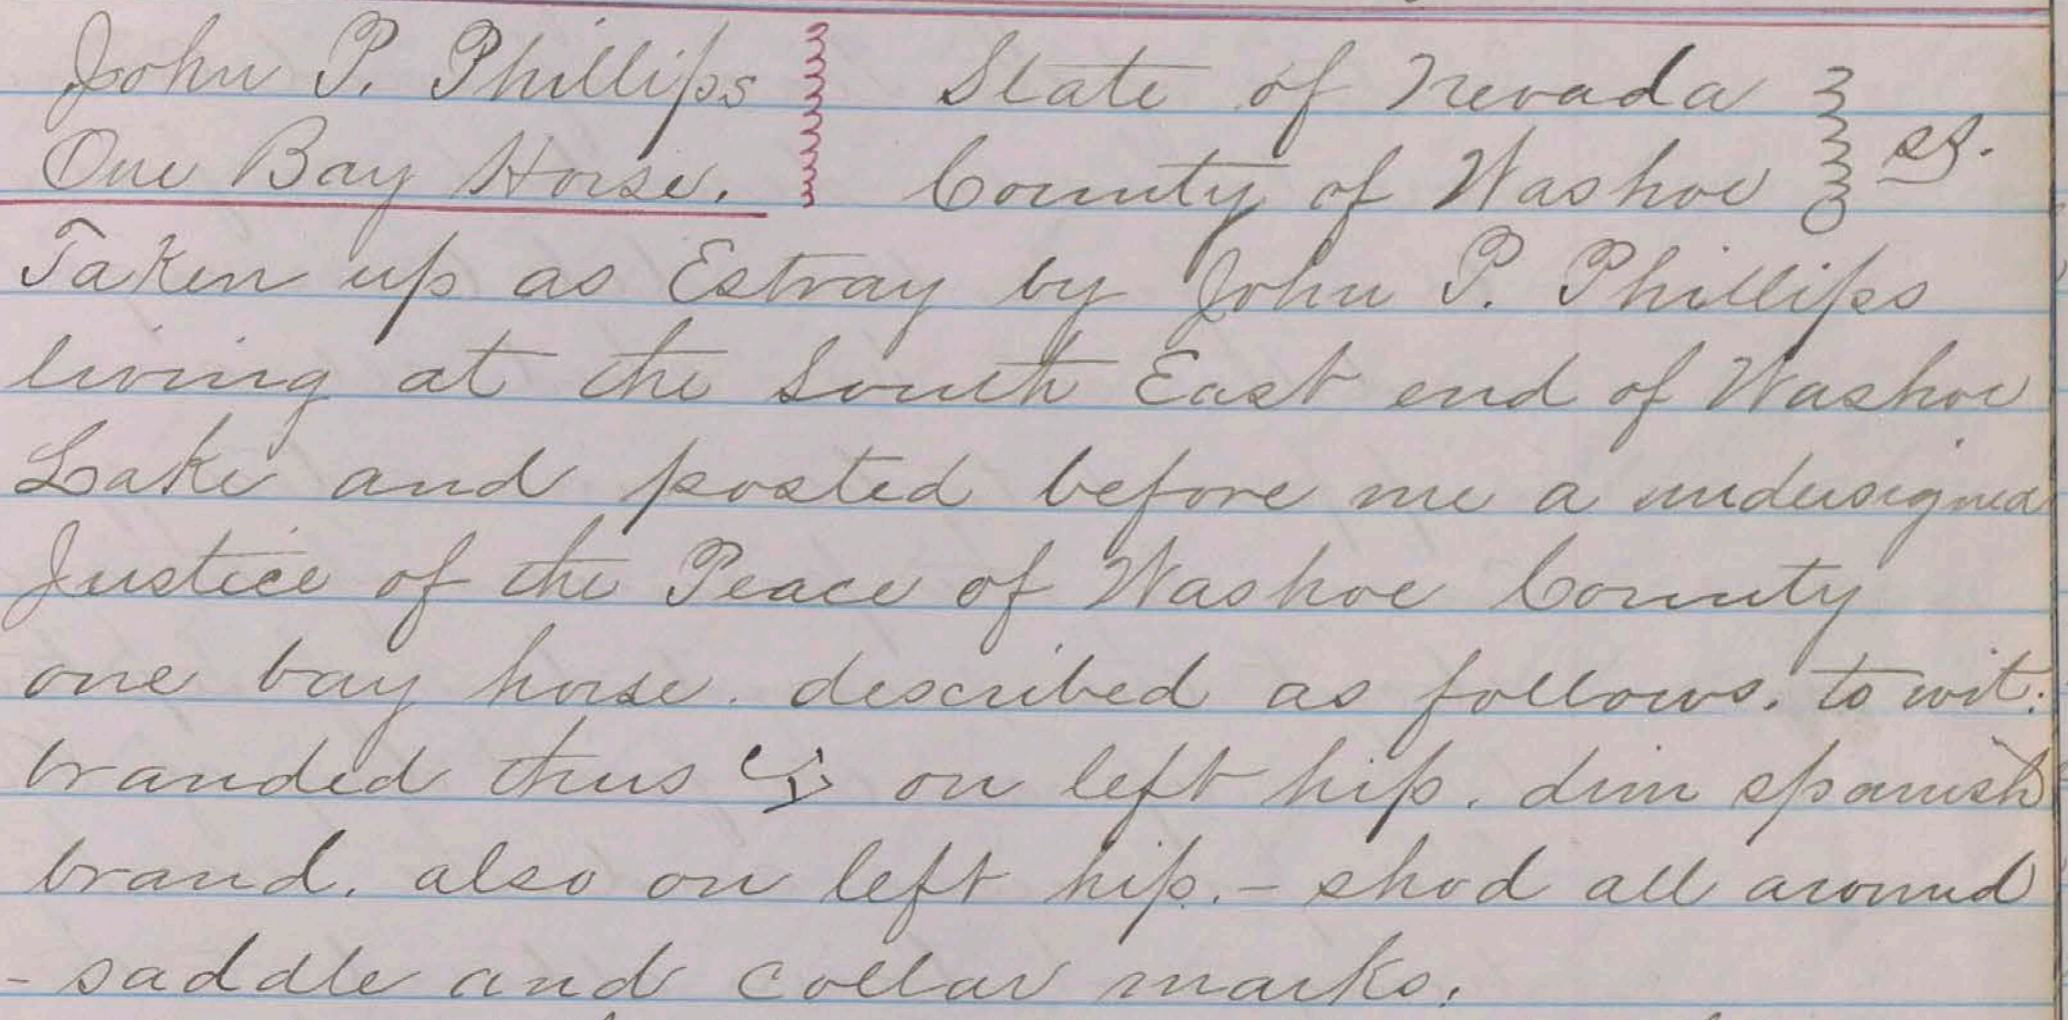 John P. Phillips
One Bay Horse.
State of Nevada
County of Washoe ss.
Taken up as Estray by John P. Phillips
living at the South East end of Washoe
Lake and posted before me a undersigned
Justice of the Peace of Washoe County
one bay horse. described as follows. to wit:
branded thus on left hip. dim spanish
brand. also on left hip. - shod all around
- saddle and collar marks.